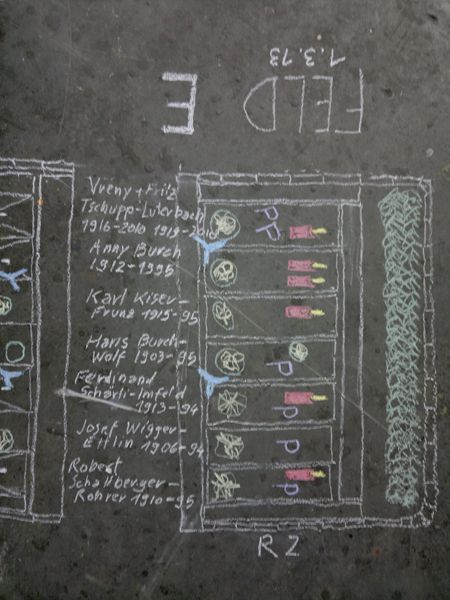 FELD E
1.3.13
Vreny + Fritz
Tschupp-Luterbach
1916-2010
PP
Anny Burch
1912-1995
Karl Kiser-
Frunz 1915-95
Hans Burch-
Wolf 1903-95
P
Ferdinand
Schärli-Imfeld
1913-94
P
Josef Wigger-
Eitlin 1906-94
P
Robert
Schallberger-
Rohrer 1910-95
P
R2